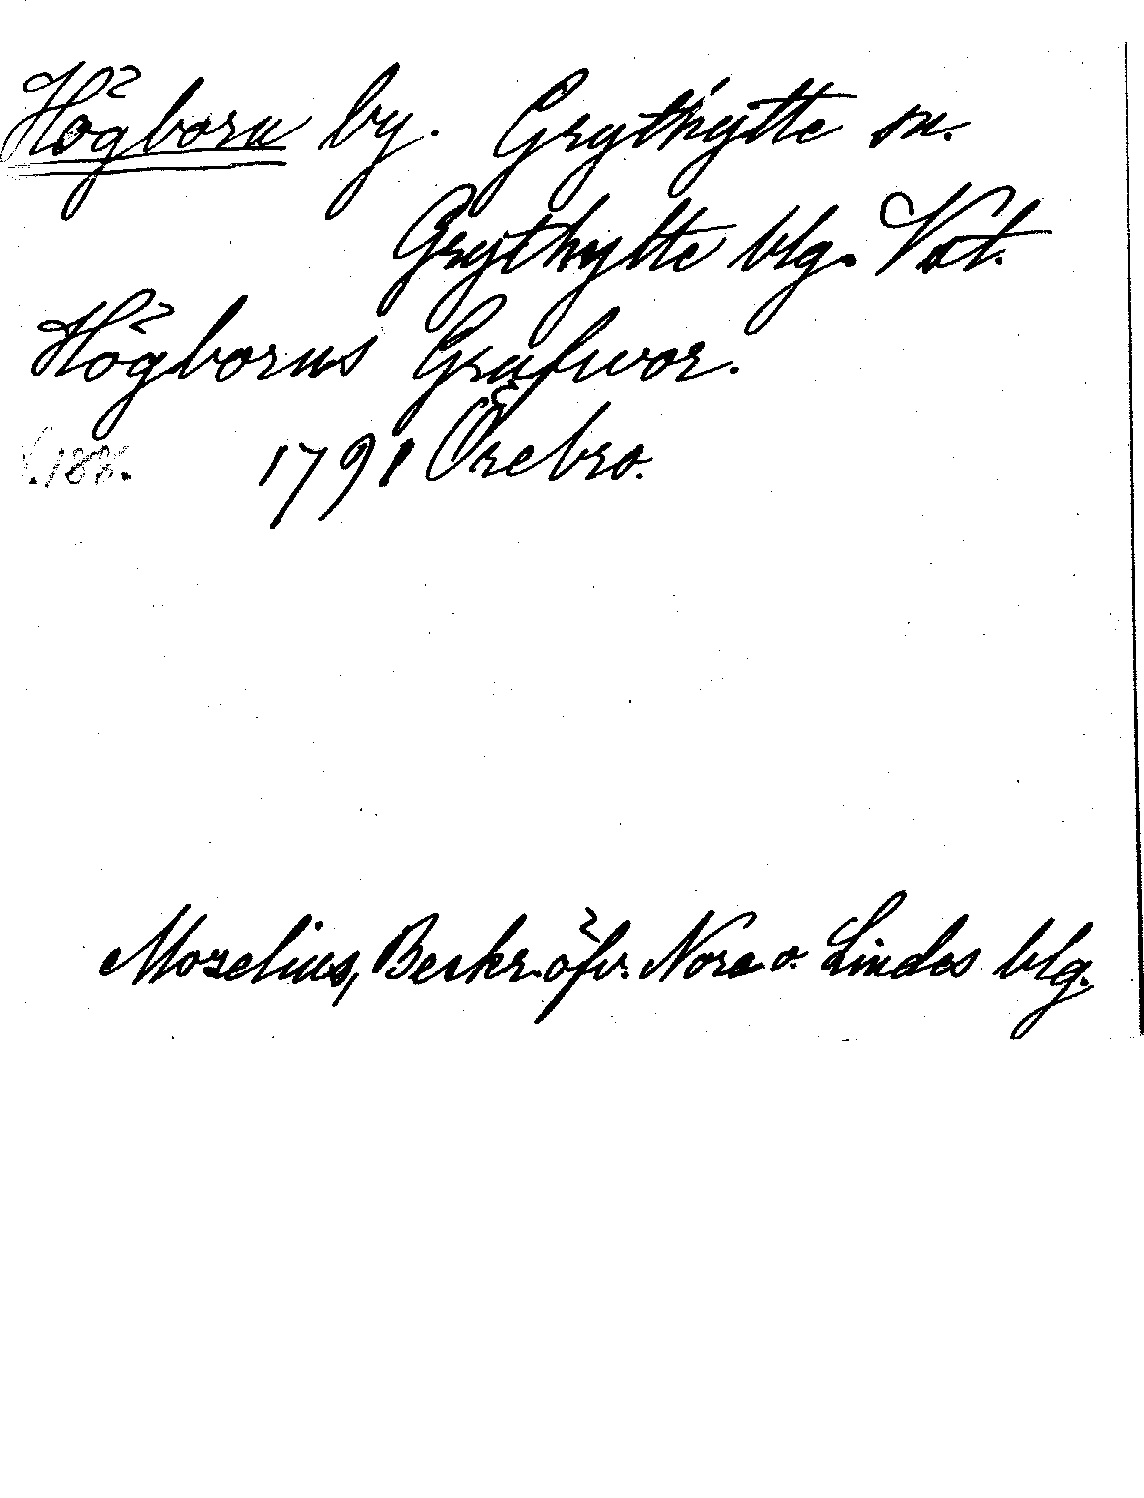 Högborn by. Grythytte sn.
Grythytte blg. Vstm.
Högborns Grufvor.
1791 Örebro.
Mozelius, Beskr. öfv. Nora o. Lindes blg.